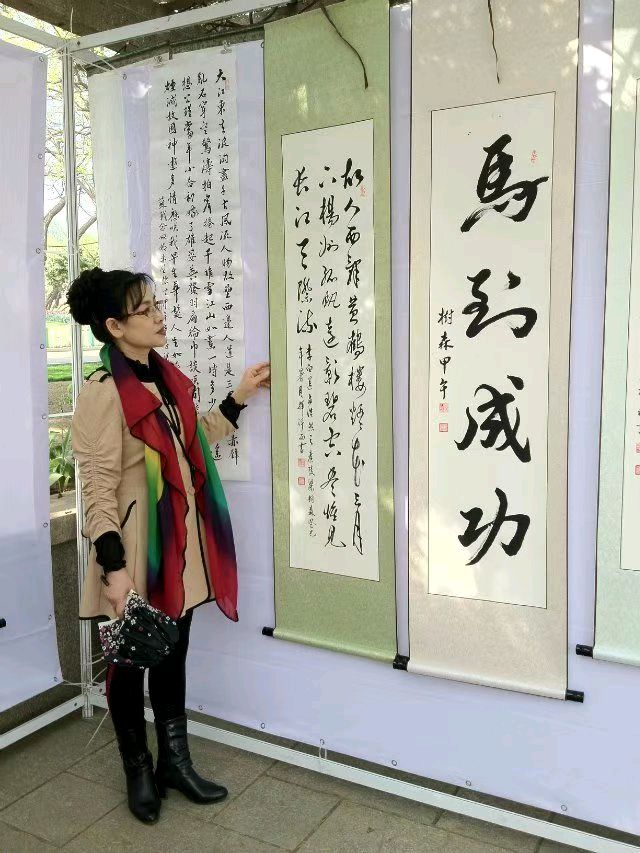 馬到成功
樹森甲午
故人西辭黄鶴樓煙花三月
下楊州孤帆遠影碧空盡惟見
長江天際流
李白送孟浩然之廣陵
大江東去浪淘盡千古風流人物故壘西邊人道是三
亂石穿空驚濤拍岸捲起千堆雪江山如畫一時多少
想公瑾當年小喬初嫁了雄姿英發羽扇綸巾談笑間
煙滅故國神遊多情應笑我早生華髮人生如